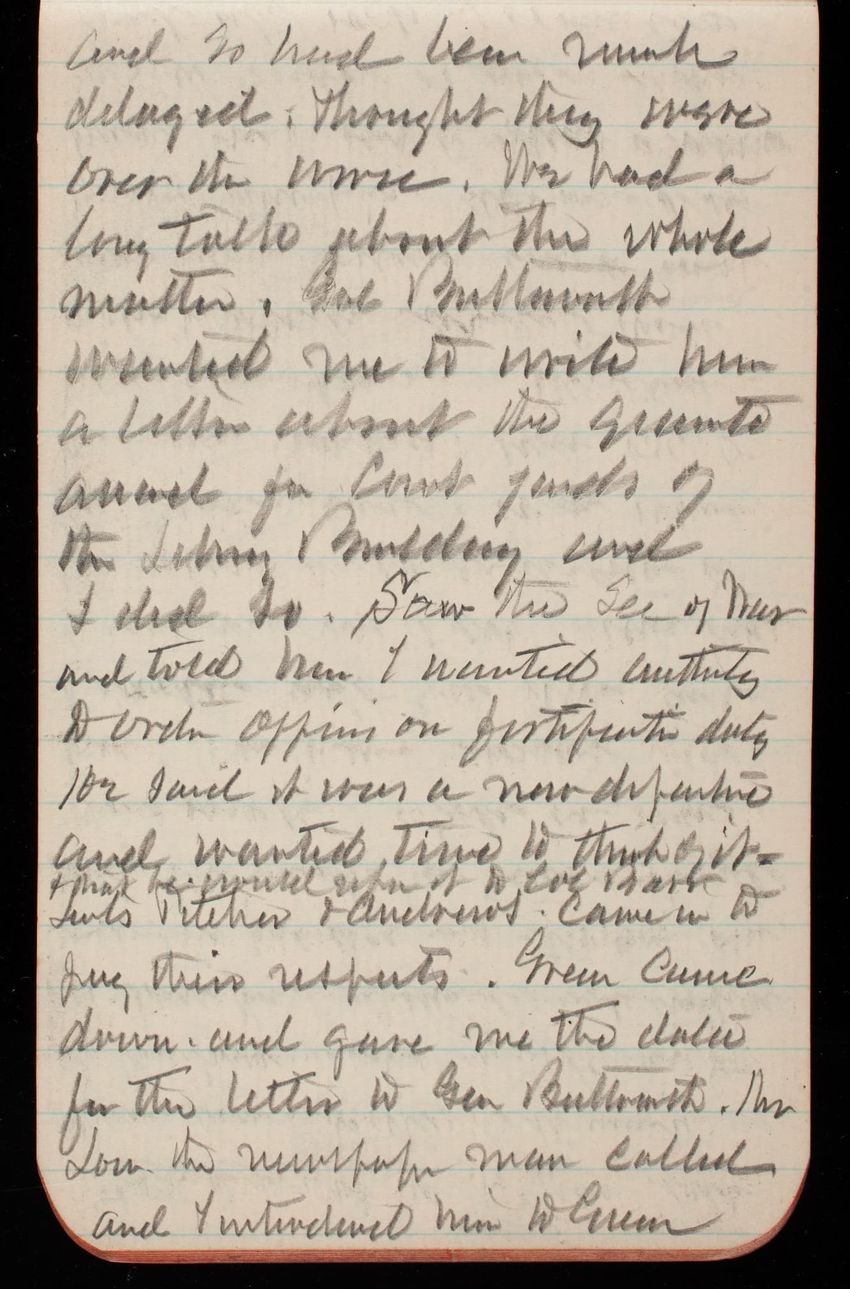 and so had been much
delayed. Thought they were
over the worse. We had a
long talk about the whole
matter. Butterworth
wanted me to write him
a letter about the granite
around for Court yards of
the Library Building and
I did so. Saw the Sec of War
and told him I wanted authority
to order officers on fortification duty
He said it was a new departure
and wanted time to think of it-
& that he would refer it to Col Barr
Lieuts Pitcher & Andrews. came in to
pay their respects. Green came
down. and gave me the data
for the letter to Gen Butterworth. Mr
Low the newspaper man called
and I introduced him to Green